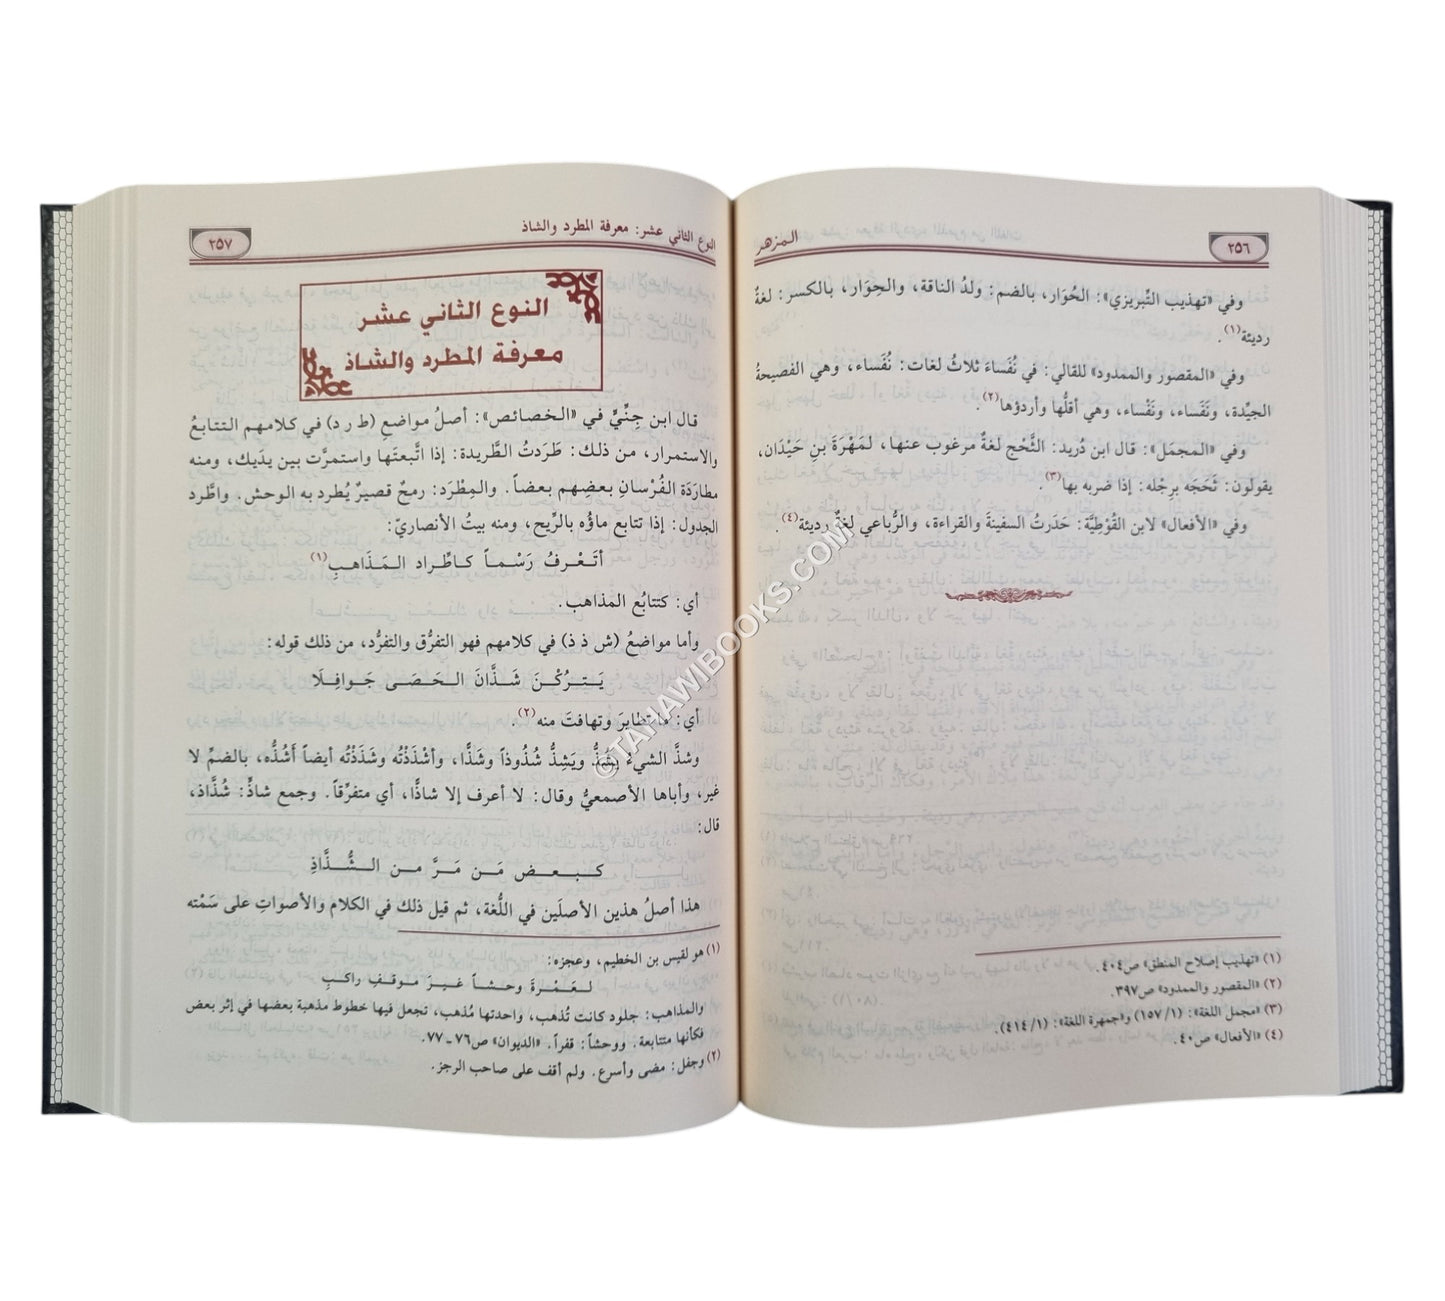 ٢٥٦
المزهر
وفي «تهذيب التِّبريزي»: الحُوَار، بالضم: ولدُ الناقة، والحِوَار، بالكسر: لغةٌ
رديئة(١).
وفي «المقصور والممدود» للقالي: في نُفَساءَ ثلاثُ لغات: نُفَساء، وهي الفصيحةُ
الجيِّدة، ونَفَساء، ونَفْساء، وهي أقلُّها وأردؤها(٢).
وفي «المجمَل»: قال ابن دُريد: الثَّحْج لغةٌ مرغوب عنها، لمَهْرَةَ بنِ حَيْدَان،
يقولون: ثَحَجَه برِجْله: إذا ضربه بها(٣).
وفي «الأفعال» لابن القُوْطِيَّة: حَدَرتُ السفينةَ والقراءة، والرُّباعي لغةٌ رديئة(٤).
(١) «تهذيب إصلاح المنطق» ص٤٠٤.
(٢) «المقصور والممدود» ص٣٩٧.
(٣) «مجمل اللغة»: (١/ ١٥٧) و«جمهرة اللغة»: (١/ ٤١٤).
(٤) «الأفعال» ص٤٠.
النوع الثاني عشر: معرفة المطرد والشاذ
٢٥٧
النوع الثاني عشر
معرفة المطرد والشاذ
قال ابن جِنِّيٍّ في «الخصائص»: أصلُ مواضعِ (ط ر د) في كلامهم التتابعُ
والاستمرار، من ذلك: طَرَدتُ الطَّريدة: إذا اتَّبعتَها واستمرَّت بين يدَيك، ومنه
مطارَدَة الفُرْسانِ بعضِهم بعضاً. والمِطْرَد: رمحٌ قصيرٌ يُطرد به الوحش. واطَّرد
الجدول: إذا تتابع ماؤُه بالرِّيح، ومنه بيتُ الأنصاريّ:
أتَعْرفُ رَسْماً كاطِّراد المَذَاهبِ(١)
أي: كتتابُع المذاهب.
وأما مواضعُ (ش ذ ذ) في كلامهم فهو التفرُّق والتفرُّد، من ذلك قوله:
يَترُكْنَ شَذَّانَ الحَصَى جَوافِلَا
أي: ما تطايرَ وتهافتَ منه(٢).
وشذَّ الشيءُ يشذُّ ويَشِذُّ شُذُوذاً وشَذًّا، وأشْذَذْتُه وشَذَذْتُه أيضاً أَشُذُّه، بالضمِّ لا
غير، وأباها الأصمعيُّ وقال: لا أعرف إلا شاذًّا، أي متفرِّقاً. وجمع شاذٍّ: شُذَّاذ،
قال:
كبعض مَن مَرَّ من الشُّذَّاذِ
هذا أصلُ هذين الأصلَين في اللُّغة، ثم قيل ذلك في الكلام والأصواتِ على سَمْته
(١) هو لقيس بن الخطيم، وعجزه:
لعَمْرةَ وحشاً غيرَ موقفِ راكبِ
والمذاهب: جلود كانت تُذهَب، واحدتها مُذهَب، تجعل فيها خطوط مذهبة بعضها في إثر بعض
فكأنها متتابعة. ووحشاً: قفراً. «الديوان» ص٧٦ ـ ٧٧.
(٢) وجفل: مضى وأسرع. ولم أقف على صاحب الرجز.
©TAHAWIBOOKS.COM